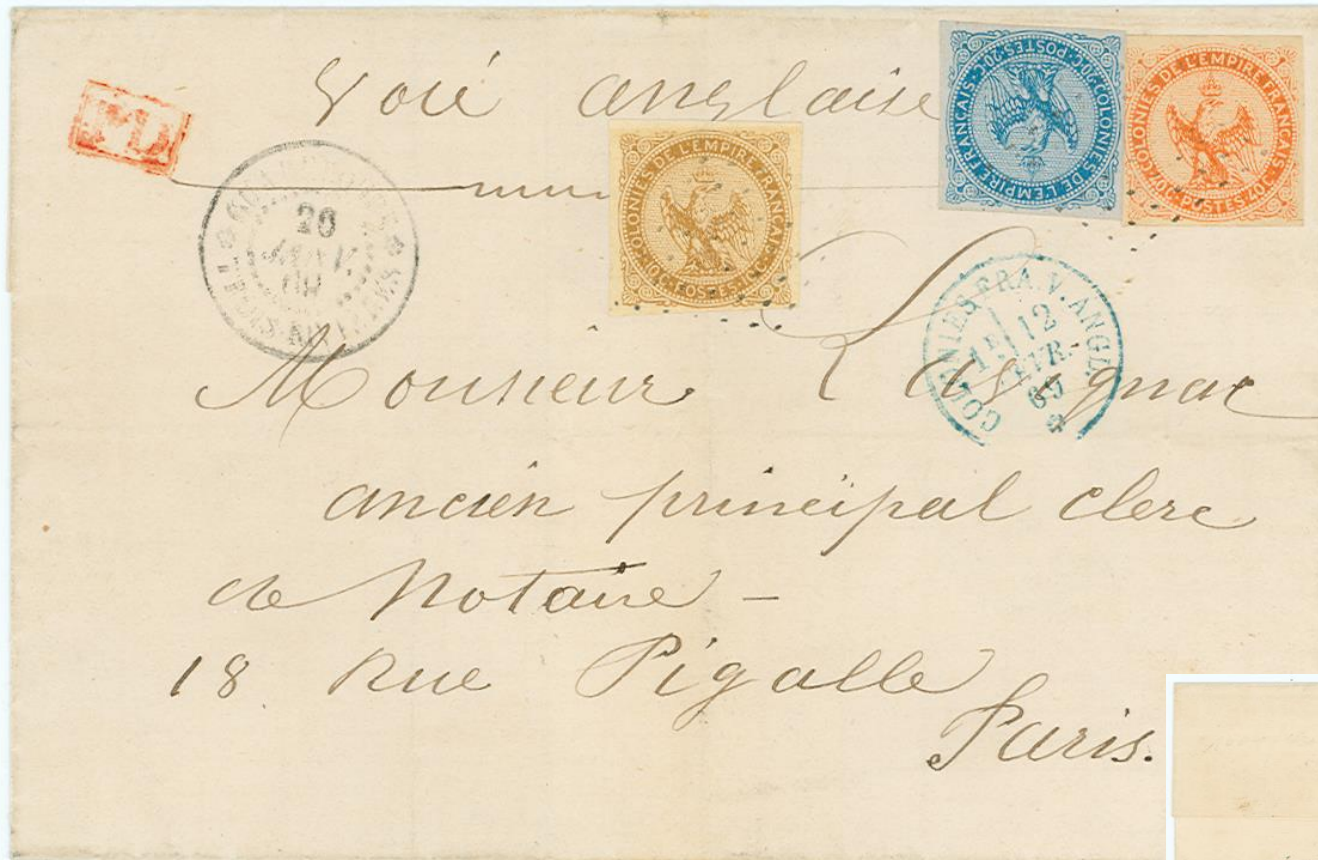 Voie anglaise
P.D.
20
JANV
COLONIES DE L'EMPIRE FRANÇAIS · 10C · POSTES · 10C ·
COLONIES DE L'EMPIRE FRANÇAIS · 20C · POSTES · 20C ·
COLONIES DE L'EMPIRE FRANÇAIS · 40C · POSTES · 40C ·
COLONIES FRA. V. ANGL.
12
FEVR.
69
Monsieur
ancien principal clerc
de Notaire –
18 Rue Pigalle
Paris.